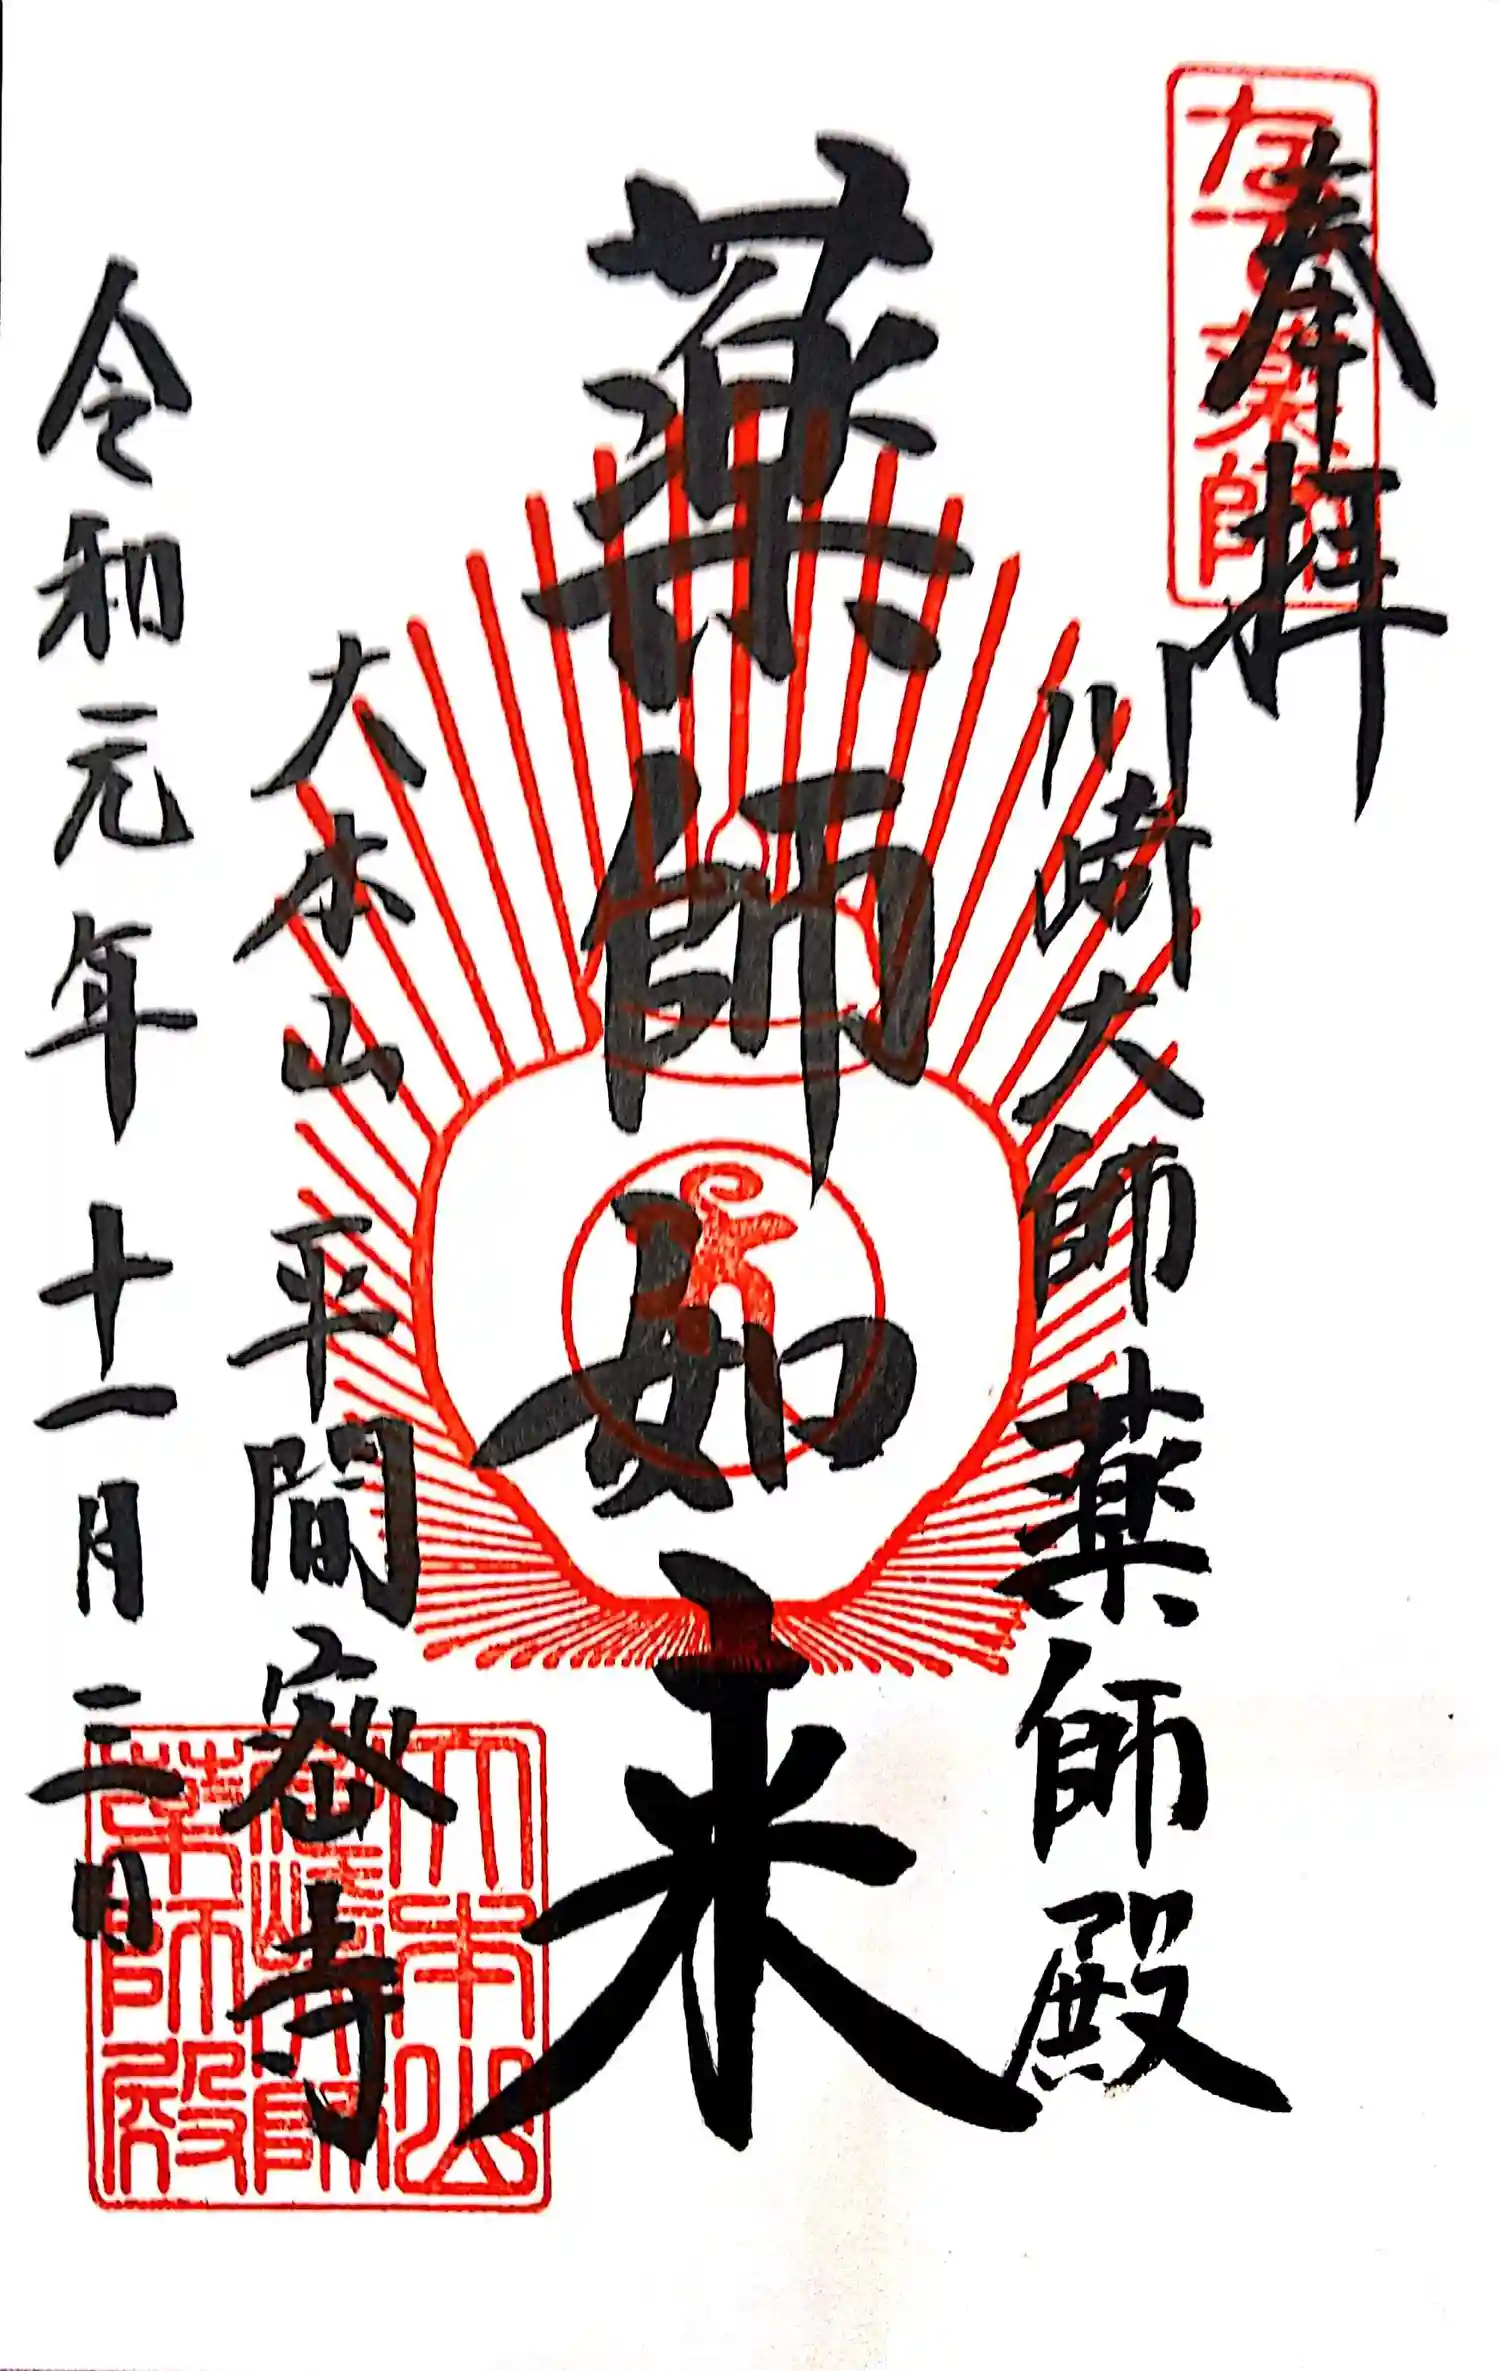 奉拝
なで薬師
川崎大師 薬師殿
薬師如来
大本山 平間密寺
令和元年 十一月 三日
大本山
川崎大師
薬師殿